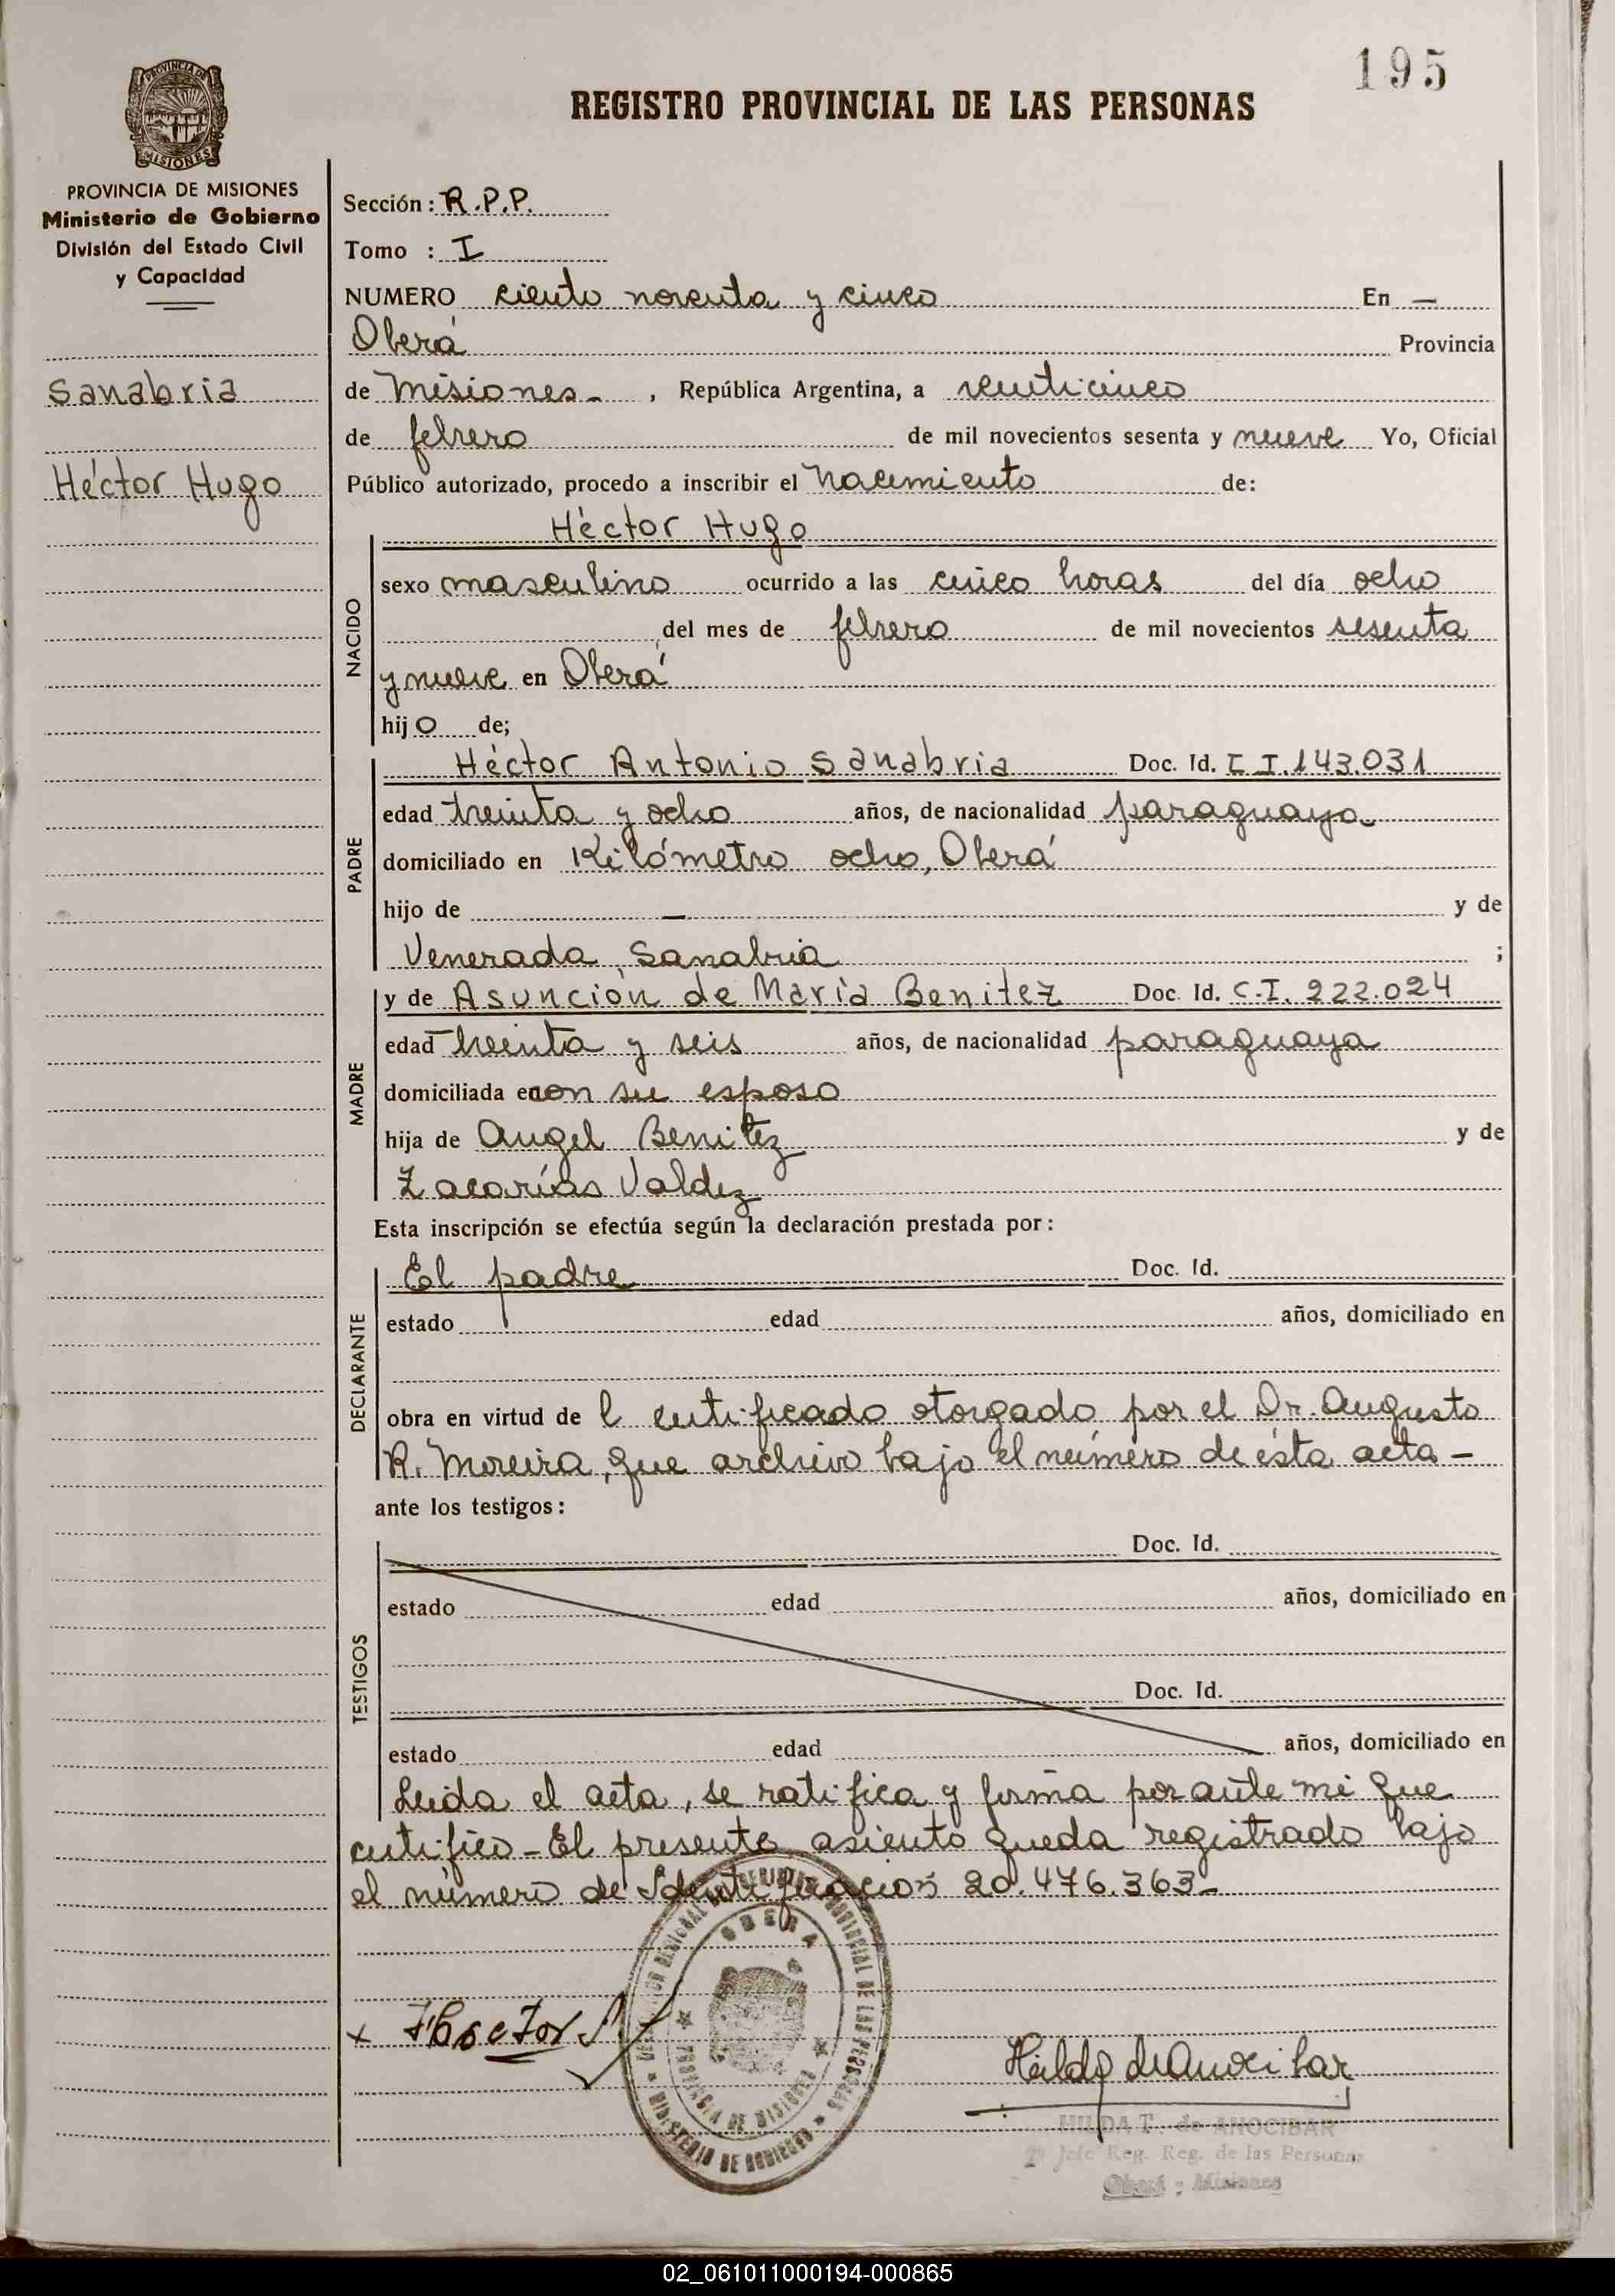 195
REGISTRO PROVINCIAL DE LAS PERSONAS
PROVINCIA DE MISIONES
Ministerio de Gobierno
División del Estado Civil
y Capacidad
Sanabria
Héctor Hugo
Sección: R.P.P.
Tomo : I
NUMERO ciento noventa y cinco En —
Oberá Provincia
de Misiones - , República Argentina, a veinticinco
de febrero de mil novecientos sesenta y nueve Yo, Oficial
Público autorizado, procedo a inscribir el Nacimiento de:
NACIDO
Héctor Hugo
sexo masculino ocurrido a las cinco horas del día ocho
del mes de febrero de mil novecientos sesenta
y nueve en Oberá
hijo de;
PADRE
Héctor Antonio Sanabria Doc. Id. C.I. 143.031
edad treinta y ocho años, de nacionalidad paraguaya
domiciliado en Kilómetro ocho, Oberá
hijo de — y de
Venerada Sanabria ;
MADRE
y de Asunción de María Benitez Doc. Id. C.I. 222.024
edad treinta y seis años, de nacionalidad paraguaya
domiciliada con su esposo
hija de Angel Benitez y de
Zacarías Valdez
Esta inscripción se efectúa según la declaración prestada por:
DECLARANTE
El padre Doc. Id.
estado edad años, domiciliado en
obra en virtud del certificado otorgado por el Dr. Augusto
R. Moreira, que archivo bajo el número de ésta acta -
ante los testigos:
TESTIGOS
Doc. Id.
estado edad años, domiciliado en
Doc. Id.
estado edad años, domiciliado en
Leida el acta, se ratifica y firma por ante mi que
certifico - El presente asiento queda registrado bajo
el número de Identificación 20.476.363 -
OBERA
PROVINCIA DE MISIONES
MINISTERIO DE GOBIERNO
Hilda de Anocibar
HILDA T. de ANOCIBAR
Jefe Reg. Reg. de las Personas
Oberá - Misiones
02_061011000194-000865